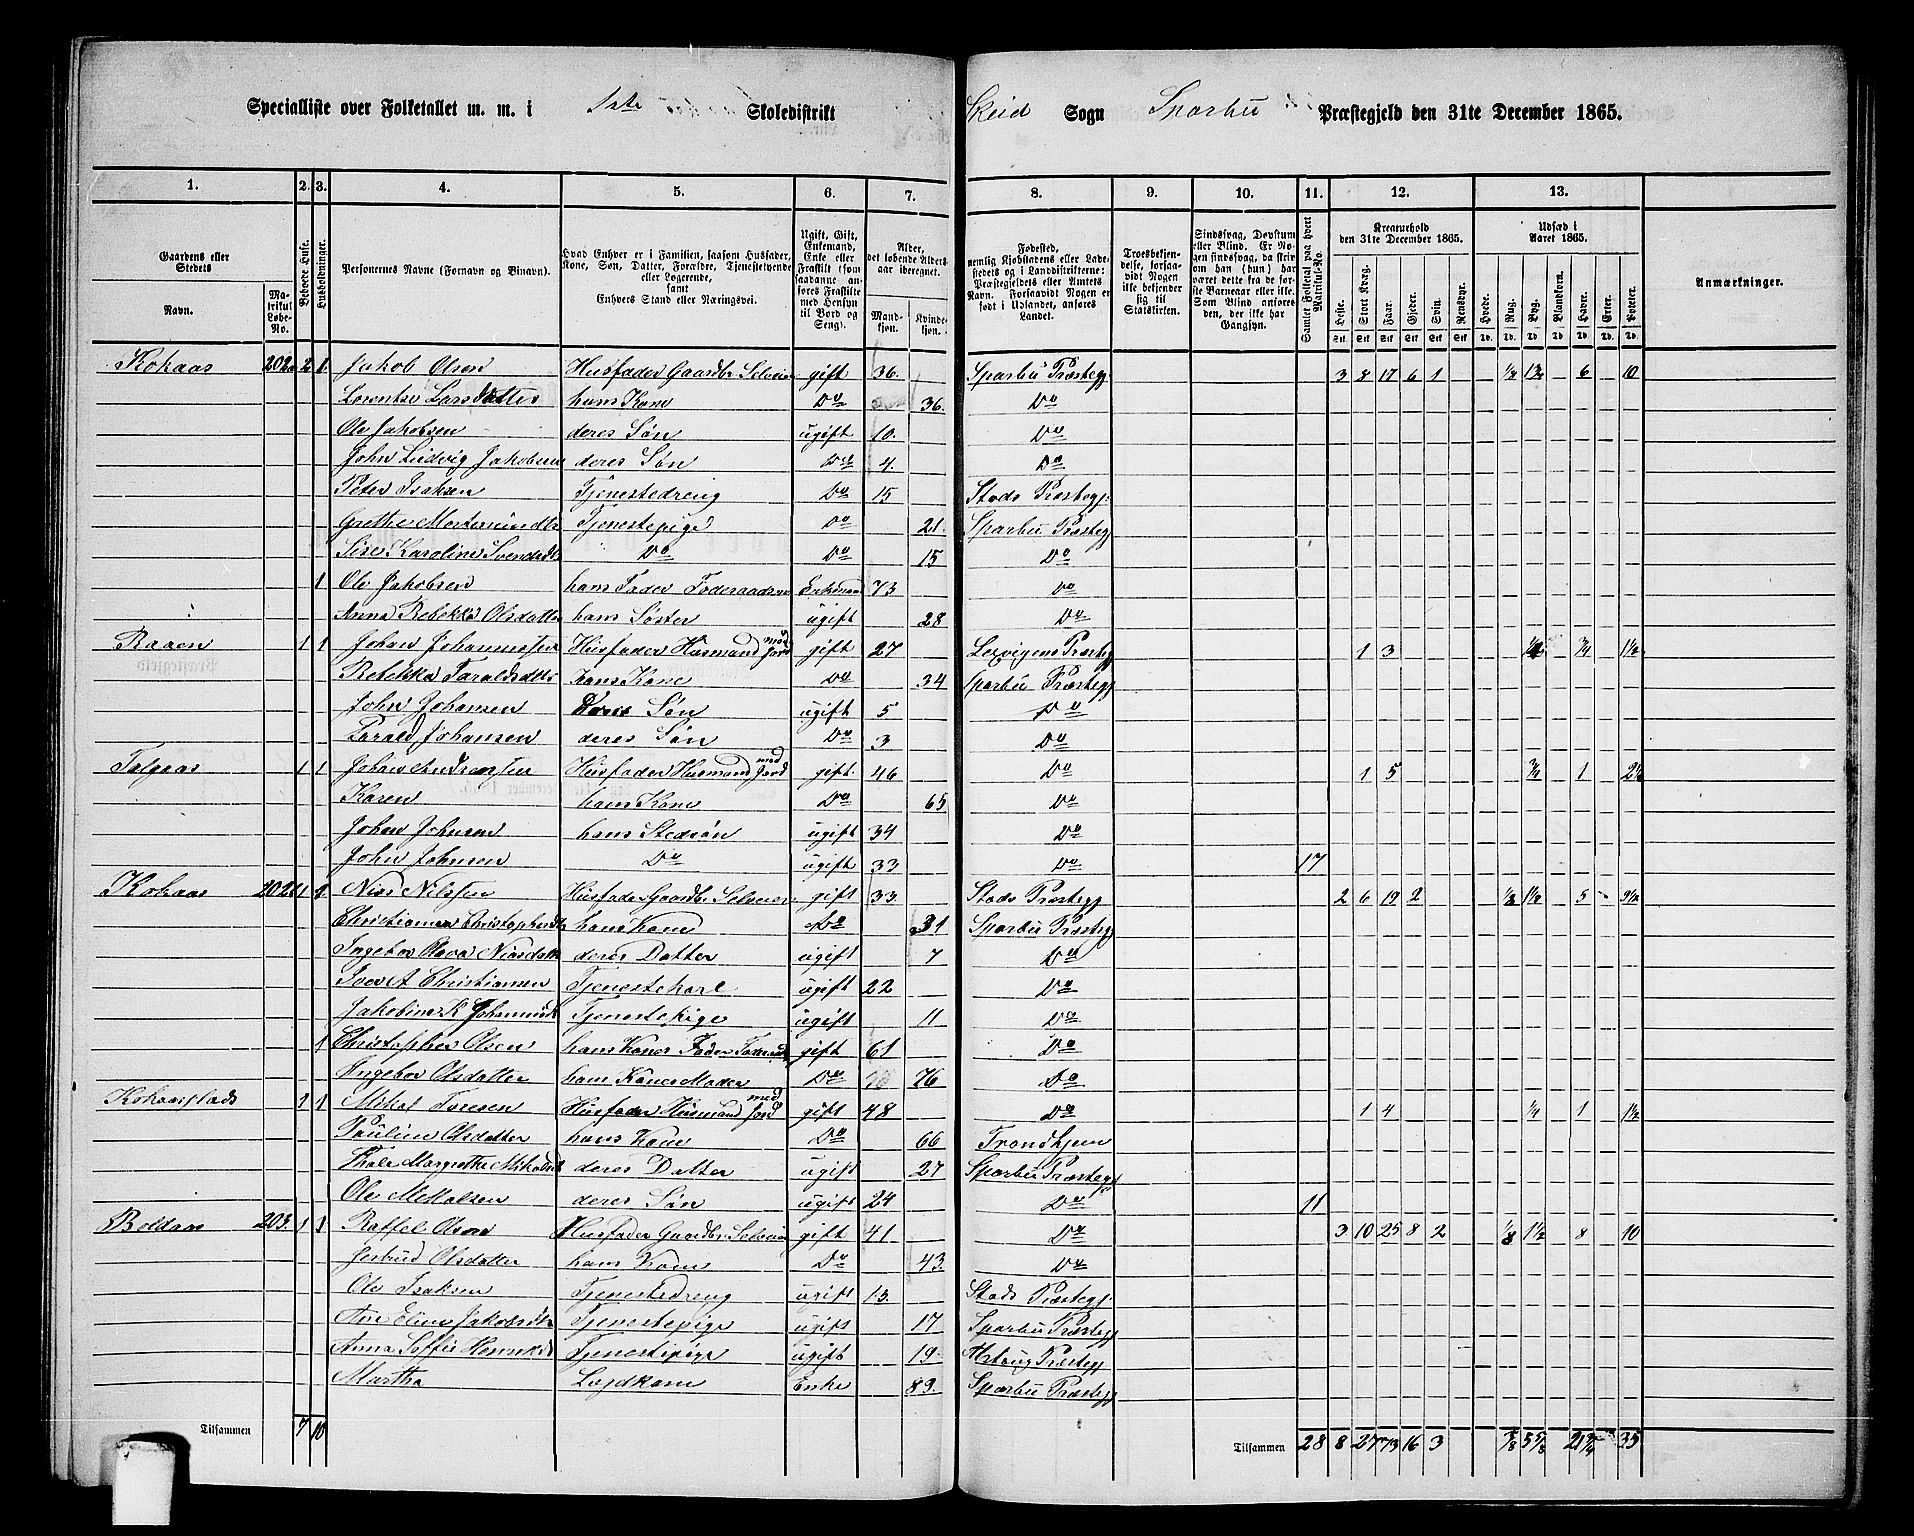 Specialliste over Folketallet m. m. i 1ste Skoledistrikt Skeid Sogn Sparbu Præstegjeld den 31te December 1865.
1. 2. 3. 4. 5. 6. 7. 8. 9. 10. 11. 12. 13.
Gaardens eller Stedets Navn. Matrikul Løbe-No. Beboede Huse. Husholdninger. Personernes Navne (Fornavn og Binavn). Hvad Enhver er i Familien, saasom Husfader, Kone, Søn, Datter, Forældre, Tjenestetyende eller Logerende, samt Enhvers Stand eller Næringsvei. Ugift, Gift, Enkemand, Enke eller Fraskilt (som saadanne anføres Fraskilte med Hensyn til Bord og Seng). Alder, det løbende Alders-aar iberegnet. Mandkjøn. Kvindekjøn. Fødested, Troesbekjendelse, forsaavidt Nogen ikke bekjender sig til Statskirken. Samlet Folketal paa hvert Matrikul-No. Kreaturhold den 31te December 1865. Heste. Stort Kvæg. Faar. Gjeder. Svin. Rensdyr. Udsæd i Aaret 1865. Hvede. Rug. Byg. Blandkorn. Havre. Erter. Poteter. Anmærkninger.
Kokaas 202a 2 1 Jakob Olsen Husfader Gaardbr Selveier gift 36. Sparbu Præstegj. 3 8 17 6 1 1/8 6 10
Lorentse Larsdatter hans Kone Do 36. Do
Ole Jakobsen deres Søn ugift 10. Do
John Ludvig Jakobsen deres Søn Do 4. Do
Peter Isaksen Tjenestedreng Do 15 Stods Præstegj.
Grethe Tjenestepige Do 21. Sparbu Præstegj
Karoline Do Do 15 Do
1 Ole Jakobsen hans Fader Enkemand 73 Do
Anna Rebekka Olsdatter hans Søster ugift 28 Do
Raaen 1 1 Johan Johannessen Husfader Husmand med Jord gift 27 Lexvigens Præstegj 1 3 3/4 1 1/2
Rebekka Taraldsdtr hans Kone Do 34 Sparbu Præstegj
John Johansen Deres Søn ugift 5 Do
Tarald Johansen deres Søn Do 3 Do
1 1 Johan Husfader Husmand med Jord gift 46 Do 1 5 3/4 1
Karen hans Kone Do 65 Do
Johan Johnsen hans Stedsøn ugift 34 Do
John Johnsen Do ugift 33 Do 17
Kokaas 202b 1 1 Nils Nilssen Husfader Gaardbr Selveier gift 33. Stods Præstegj 2 6 19 2 1/8 1 1/2 5 9 1/2
hans Kone Do 31 Sparbu Præstegj
Ingebor Olava deres Datter ugift 7 Do
Christiansen Tjenestekarl ugift 22 Do
Jakobine K Tjenestepige ugift 11 Do
1 Christopher Olsen hans Kones Fader gift 61 Do
Ingebor Olsdatter hans Kones Moder Do 76 Do
Kokaasplads 1 1 Mikal Toresen Husfader Husmand med Jord gift 48 Do 1 4 1/4 1 1 1/2
Pauline Olsdatter hans Kone Do 66 Trondhjem
Margrethe deres Datter ugift 27 Sparbu Præstegj
Ole Mikalsen deres Søn ugift 24 Do 11
Boldaas 203. 1 1 Raffel Olsen Husfader Gaardbr Selveier gift 41 Do 3 10 25 8 2 1/8 1 1/2 8 10
Gertrud Olsdatter hans Kone Do 43. Do
Ole Isaksen Tjenestedreng ugift 13. Stods Præstegj.
Jakobsdtr Tjenestepige ugift 17 Sparbu Præstegj
Anna Soffie Tjenestepige ugift 19. Præstegj
Martha Enke 89. Sparbu Præstegj
Tilsammen 7 10 Tilsammen 28 8 27 73 16 3 7/8 5 5/8 21 3/4 35